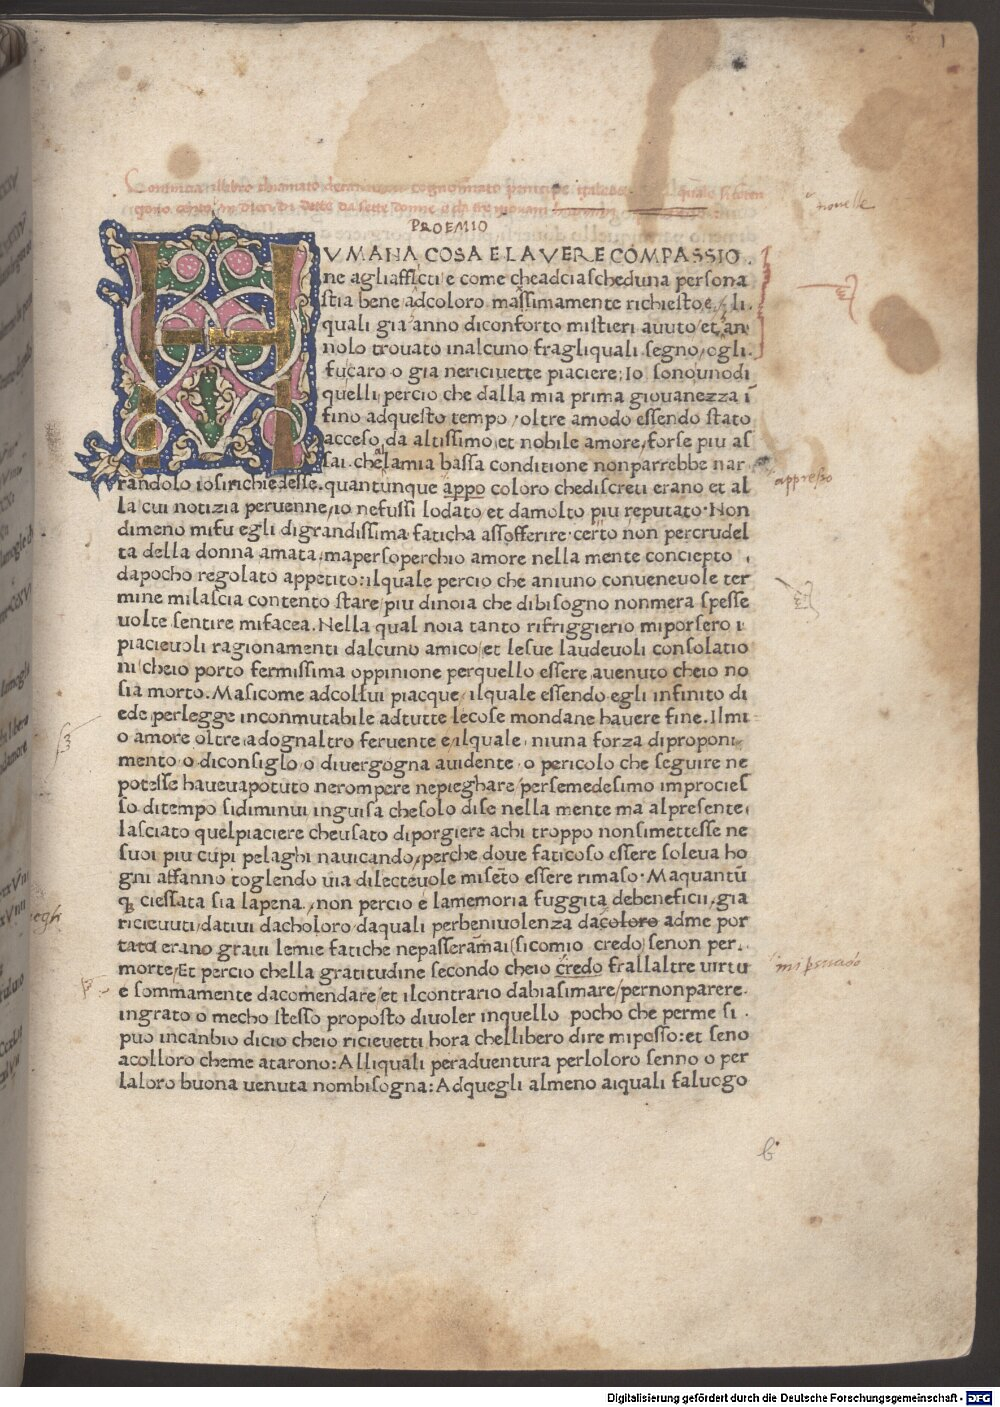 Comincia illibro chiamato decameron cognominato principe
PROEMIO
novelle
HVMANA COSA E LAVERE COMPASSIO
ne agliafflicti e come cheadciascheduna persona
stia bene adcoloro massimamente richiesto e, li
quali gia anno diconforto mistieri auuto et an
nolo trouato inalcuno fragliquali segno, egli
fucaro o gia nericieuette piaciere; Io sonounodi
quelli percio che dalla mia prima giouanezza ī
fino adquesto tempo, oltre amodo essendo stato
acceso, da altissimo et nobile amore, forse piu as
sai. che lamia bassa conditione nonparrebbe nar
randolo iosirichiedesse. quantunque appo coloro chediscreti erano et al
appresso
la cui notizia peruenne, io nefussi lodato et damolto piu reputato. Non
dimeno mifu egli digrandissima faticha assofferire. certo non percrudel
ta della donna amata. mapersoperchio amore nella mente conciepto
dapocho regolato appetito: ilquale percio che aniuno conueneuole ter
mine milascia contento stare, piu dinoia che dibisogno nonmera spesse
uolte sentire mifacea. Nella qual noia tanto rifriggierio miporsero i
piacieuoli ragionamenti dalcuno amico, et lesue laudeuoli consolatio
ni cheio porto fermissima oppinione perquello essere auenuto cheio no
sia morto. Masicome adcollui piacque, ilquale essendo egli infinito di
ede, perlegge inconmutabile adtutte lecose mondane hauere fine. Ilmi
o amore oltre, adognaltro feruente e, ilquale, niuna forza diproponi
mento o diconsiglo, o diuergogna auidente, o pericolo che seguire ne
potesse haueuapotuto nerompere nepieghare, persemedesimo improcies
so ditempo sidiminui inguisa chesolo dise nella mente ma alpresente,
lasciato quelpiaciere cheusato diporgiere achi troppo nonsimettesse ne
suoi piu cupi pelaghi nauicando, perche doue faticoso essere soleua ho
gni affanno toglendo uia dilecteuole misēto essere rimaso. Maquantū
q̨ ciessata sia lapena, non percio e lamemoria fuggita debeneficii, gia
riciεuuti, datiui dacholoro daquali perbeniuolenza dacoloro adme por
tata erano graui lemie fatiche nepasseramai (sicomio credo) senon per
morte, Et percio chella gratitudine secondo cheio credo frallaltre uirtu
e sommamente dacomendare, et ilcontrario dabiasimare, pernonparere.
ingrato o mecho stesso proposto diuoler inquello pocho che perme si.
puo incanbio dicio cheio ricieuetti hora chellibero dire miposso: et seno
acolloro cheme atarono: Alliquali peraduentura perloloro senno o per
laloro buona uenuta nombisogna: Adquegli almeno aiquali faluogo
b
Digitalisierung gefördert durch die Deutsche Forschungsgemeinschaft - DFG